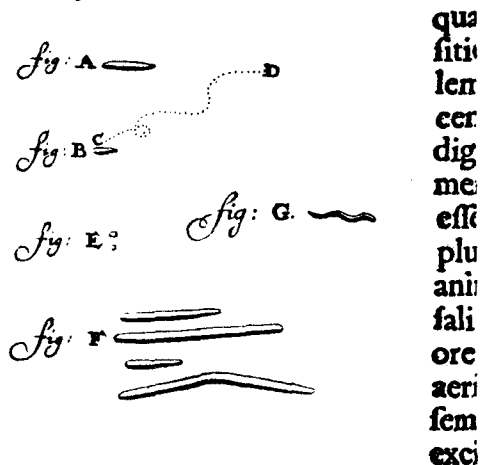 fig: A
D
C
fig: B
fig: G.
fig: E
fig: F
qua
ſitio
lem
cen
dig
men
eſſe
plu
ani
ſali
ore
aeri
ſem
exci